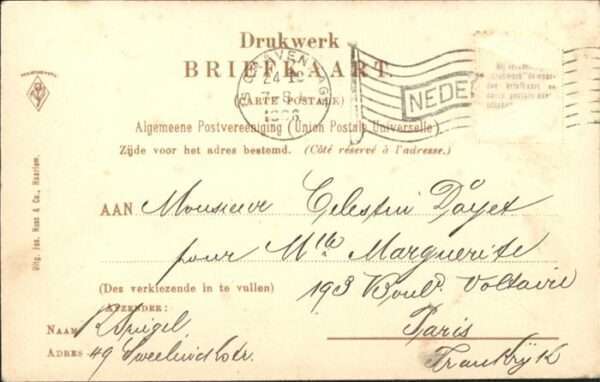 Drukwerk
BRIEFKAART.
(CARTE POSTALE)
Algemeene Postvereeniging (Union Postale Universelle).
Zijde voor het adres bestemd. (Côté réservé à l'adresse.)
NEDE
AAN Monsieur Celestin Doyet
pour Mlle Marguerite
(Des verkiezende in te vullen) 193 Boul. Voltaire
AFZENDER: Paris
NAAM
ADRES 49 Frankrijk
Uitg. Jos. Nuss & Co., Haarlem.